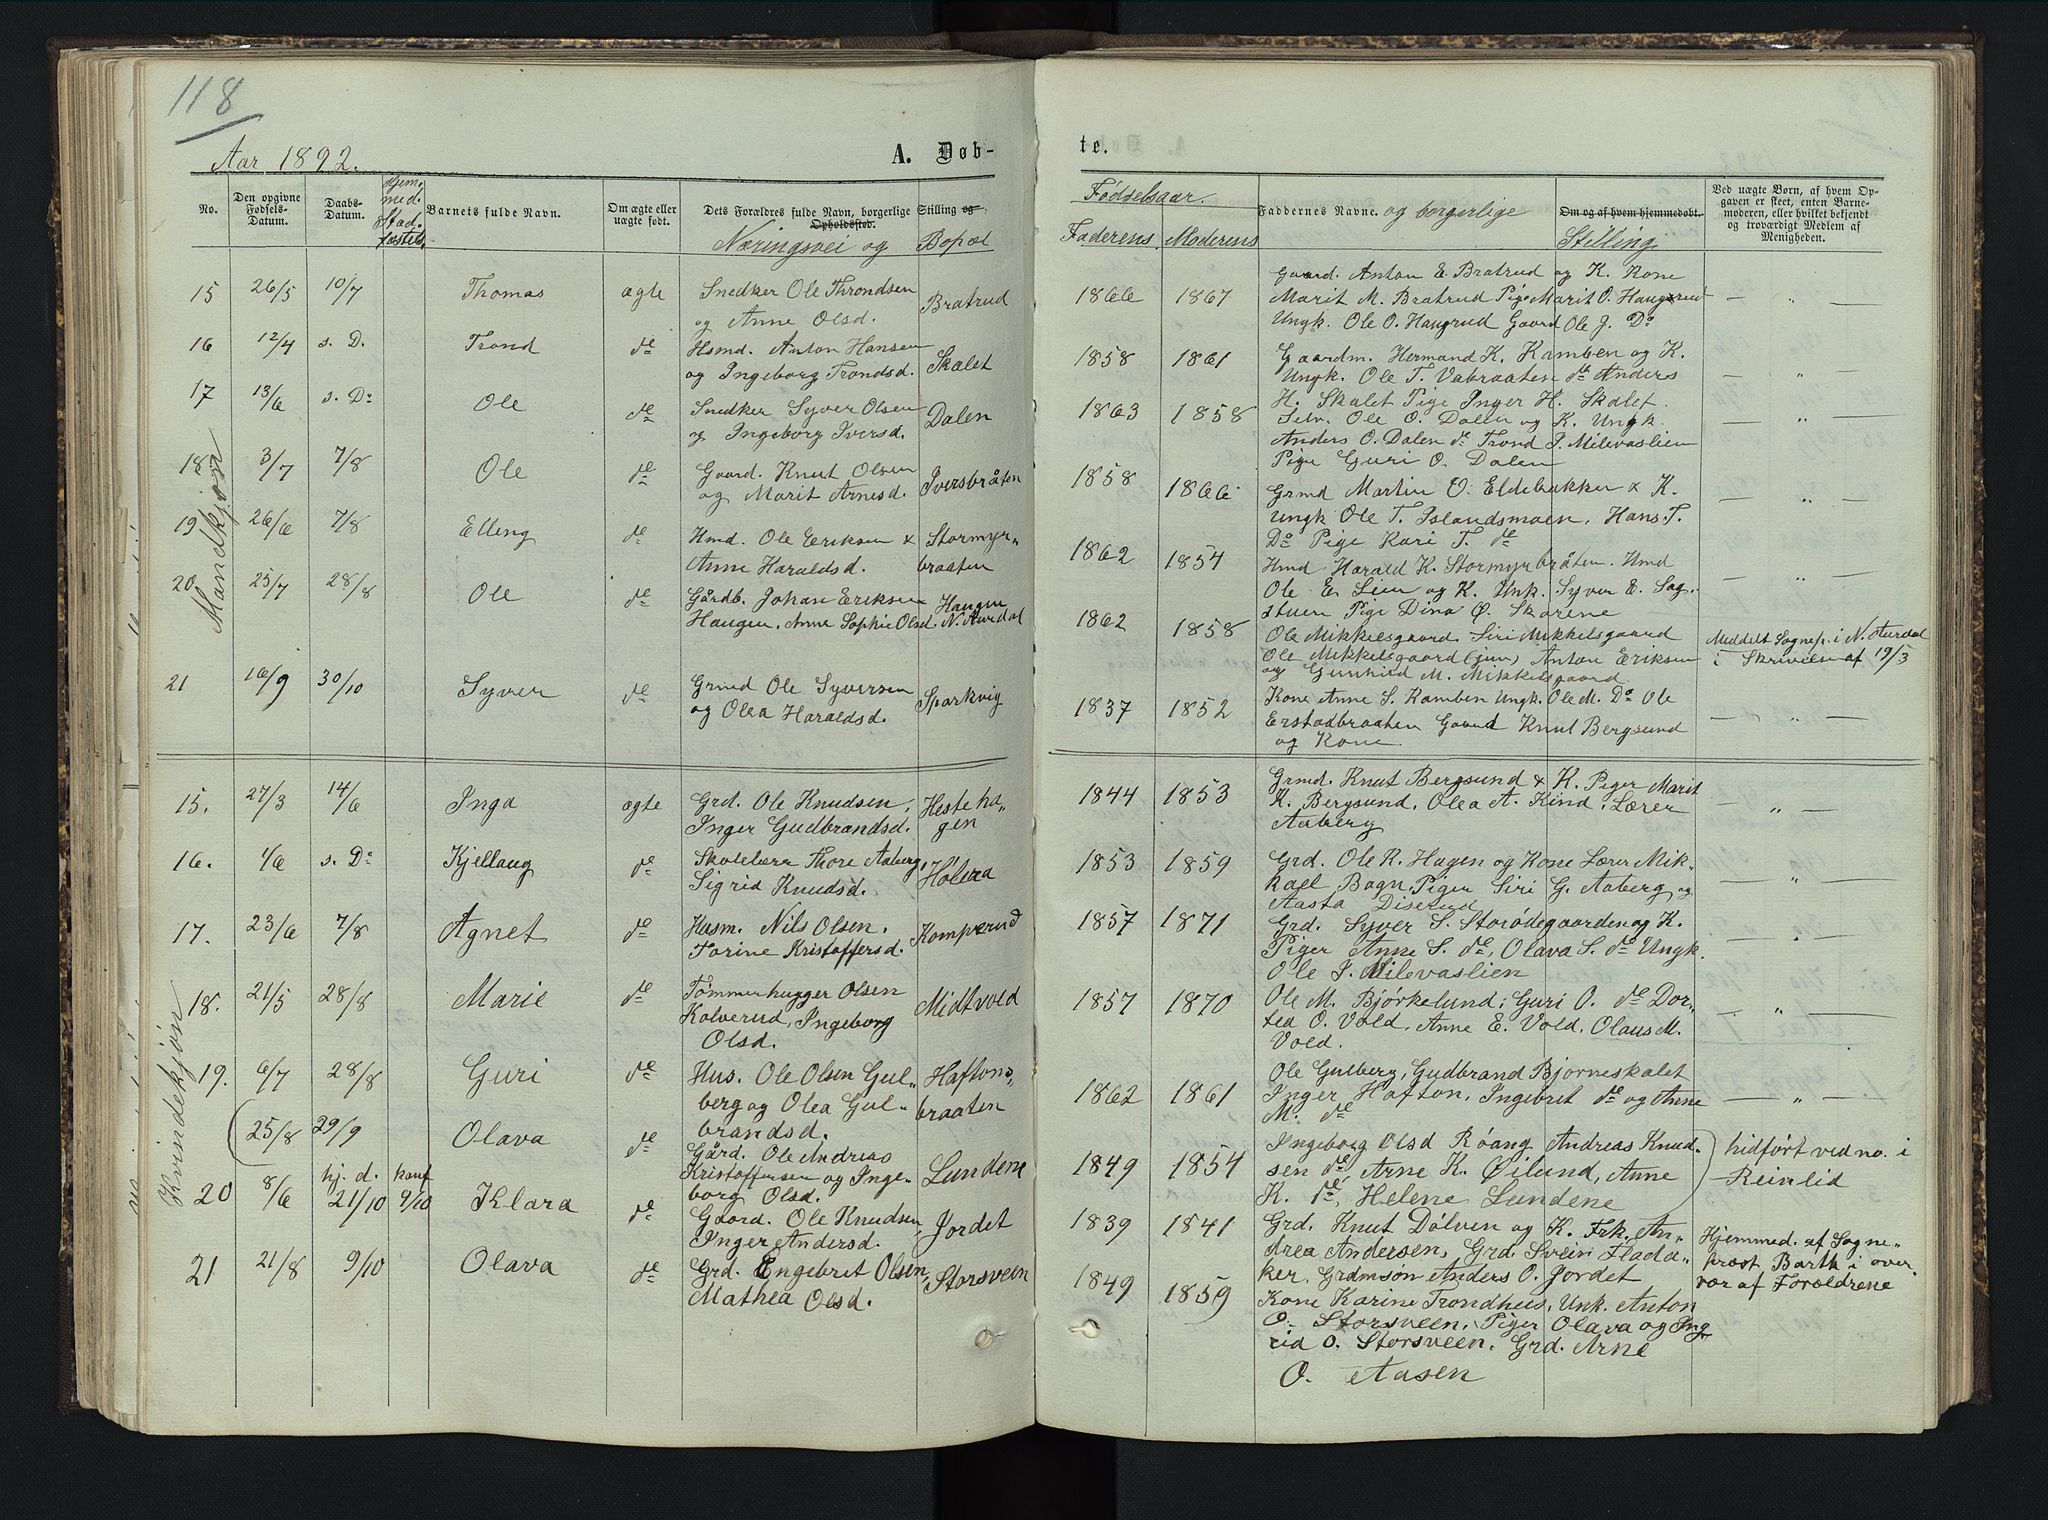 118
Aar 1892.
A. Døb-
te.
No.
Den opgivne Fødsels-Datum.
Daabs-Datum.
Hjem. med. Stad. fæstels.
Barnets fulde Navn.
Om ægte eller uægte født.
Dets Forældres fulde Navn, borgerlige Stilling og Opholdssted.
Næringsvei og Bopæl
Fødselsaar.
Faderens Moderens
Faddernes Navne. og borgerlige Stilling
Om og af hvem hjemmedøbt.
Ved uægte Børn, af hvem Op-
gaven er skeet, enten Barne-
moderen, eller hvilket bekjendt
og troværdigt Medlem af
Menigheden.
Mandkjøn
15 26/5 10/7 Thomas ægte Snedker Ole Throndsen
og Anne Olsd. Bratrud
1866 1867
Gaard. Anton E. Bratrud og K. Kone
Marit M. Bratrud Pige Marit O. Haugrud
Ungk. Ole O. Haugrud Gaard Ole J. Do
— " —
16 12/4 s. D. Trond de Hsmd. Anton Hansen
og Ingeborg Trondsd. Skalet
1858 1861
Gaardm. Hermand K. Kamben og K.
Ungk. Ole T. Vabraaten de Anders
H. Skalet Pige Inger H. Skalet.
— " —
17 13/6 s. Do Ole de Snedker Syver Olsen
og Ingeborg Iversd. Dalen
1863 1858
Selv. Ole O. Dalen og K. Ungk.
Anders O. Dalen de Trond I. Milevaslien
Pige Guri O. Dalen
— " —
18 3/7 7/8 Ole de Gaard. Knut Olsen
og Marit Arnesd. Iversbråten
1858 1866
Grmd Martin O. Eldebakken & K.
Ungk Ole T. Islandsmoen, Hans T.
Do Pige Kari T. de
— " —
19 26/6 7/8 Elling de Hmd. Ole Eriksen &
Anne Haraldsd. Stormyr-
braaten
1862 1854
Hmd Harald K. Stormyrbråten. Hmd
Ole E. Lien og K. Unk. Syver E. Sag-
stuen Pige Dina Ø. Skarene
— " —
20 25/7 28/8 Ole de Gårdb. Johan Eriksen
Haugen, Anne Sophie Olsd. Haugen
N. Aurdal
1862 1858
Ole Mikkelsgaard. Siri Mikkelsgaard
Ole Mikkelsgaard (jun) Anton Eriksen
og Gunhild M. Mikkelsgaard
Meddelt Sognep. i N. Aurdal
i Skrivelse af 19/3
21 16/9 30/10 Syver de Grmd Ole Syversen
og Olea Haraldsd. Sparkvig
1837 1852
Kone Anne S. Kamben Ungk. Ole M. Do Ole
Erstadbraaten Gaard Knut Bergsund
og Kone.
— " —
Kvindekjøn
15. 27/3 14/6 Inga ægte Grd. Ole Knudsen,
Inger Gudbrandsd. Hesteha-
gen
1844 1853
Grmd. Knut Bergsund & K. Piger Marit
K. Bergsund, Olea A. Kind. Lærer
Aaberg
— " —
16. 4/6 s. Do Kjellaug de Skolelærer Thore Aaberg,
Sigrid Knudsd. Hølera
1853 1859
Grd. Ole R. Hagen og Kone Lærer Mik-
kael Bagn, Piger Siri G. Aaberg og
Aasta Diserud
— " —
17. 23/6 7/8 Agnet de Husm. Nils Olsen.
Torine Kristoffersd. Komperud
1857 1871
Grd. Syver S. Storødegaarden og K.
Piger Anne S. de, Olava S. de Ungk.
Ole I. Milevaslien
— " —
18. 21/5 28/8 Marie de Tømmerhugger Olsen
Kolverud, Ingeborg
Olsd. Midtvold
1857 1870
Ole M. Bjørkelund, Guri O. de Dor-
tea O. Vold, Anne E. Vold, Olaus M.
Vold.
— " —
19. 6/7 28/8 Guri de Hus. Ole Olsen Gul-
berg og Olea Gul-
brandsd. Haftons-
braaten
1862 1861
Ole Gulberg, Gudbrand Bjørneskalet
Inger Hafton, Ingebret de og Anne
M. de
— " —
25/8 29/9 Olava de Gård. Ole Andreas
Kristoffersen og Inge-
borg Olsd. Lundene
1849 1854
Ingeborg Olsd Røang Andreas Knud-
sen de, Arne K. Øilund, Anne
K. de, Helene Lundene
hidført ved no. i
Reinlid
20 8/6 hj. d. 21/10 9/10 Klara de Gaard. Ole Knudsen,
Inger Andersd. Jordet
1839 1841
Grd. Knut Dølven og K. Frk. An-
drea Andersen, Grd. Svein Flada-
ker, Grdmsøn Anders O. Jordet
Hjemmed. af Sogne-
præst Barth i over-
vær af Forældrene
21 21/8 9/10 Olava de Grd. Engebret Olsen,
Mathea Olsd. Storsveen
1849 1859
Kone Karine Trondhus, Unk. Anton
O. Storsveen, Piger Olava og Ing-
rid O. Storsveen, Grd. Arne
O. Aasen